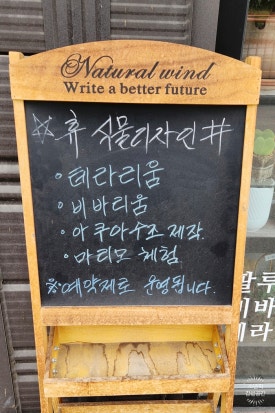 Natural wind
Write a better future
☆휴 식물디자인#
• 테라리움
• 비바리움
• 아쿠아수조 제작.
• 마리모 체험.
※예약제로 운영됩니다.